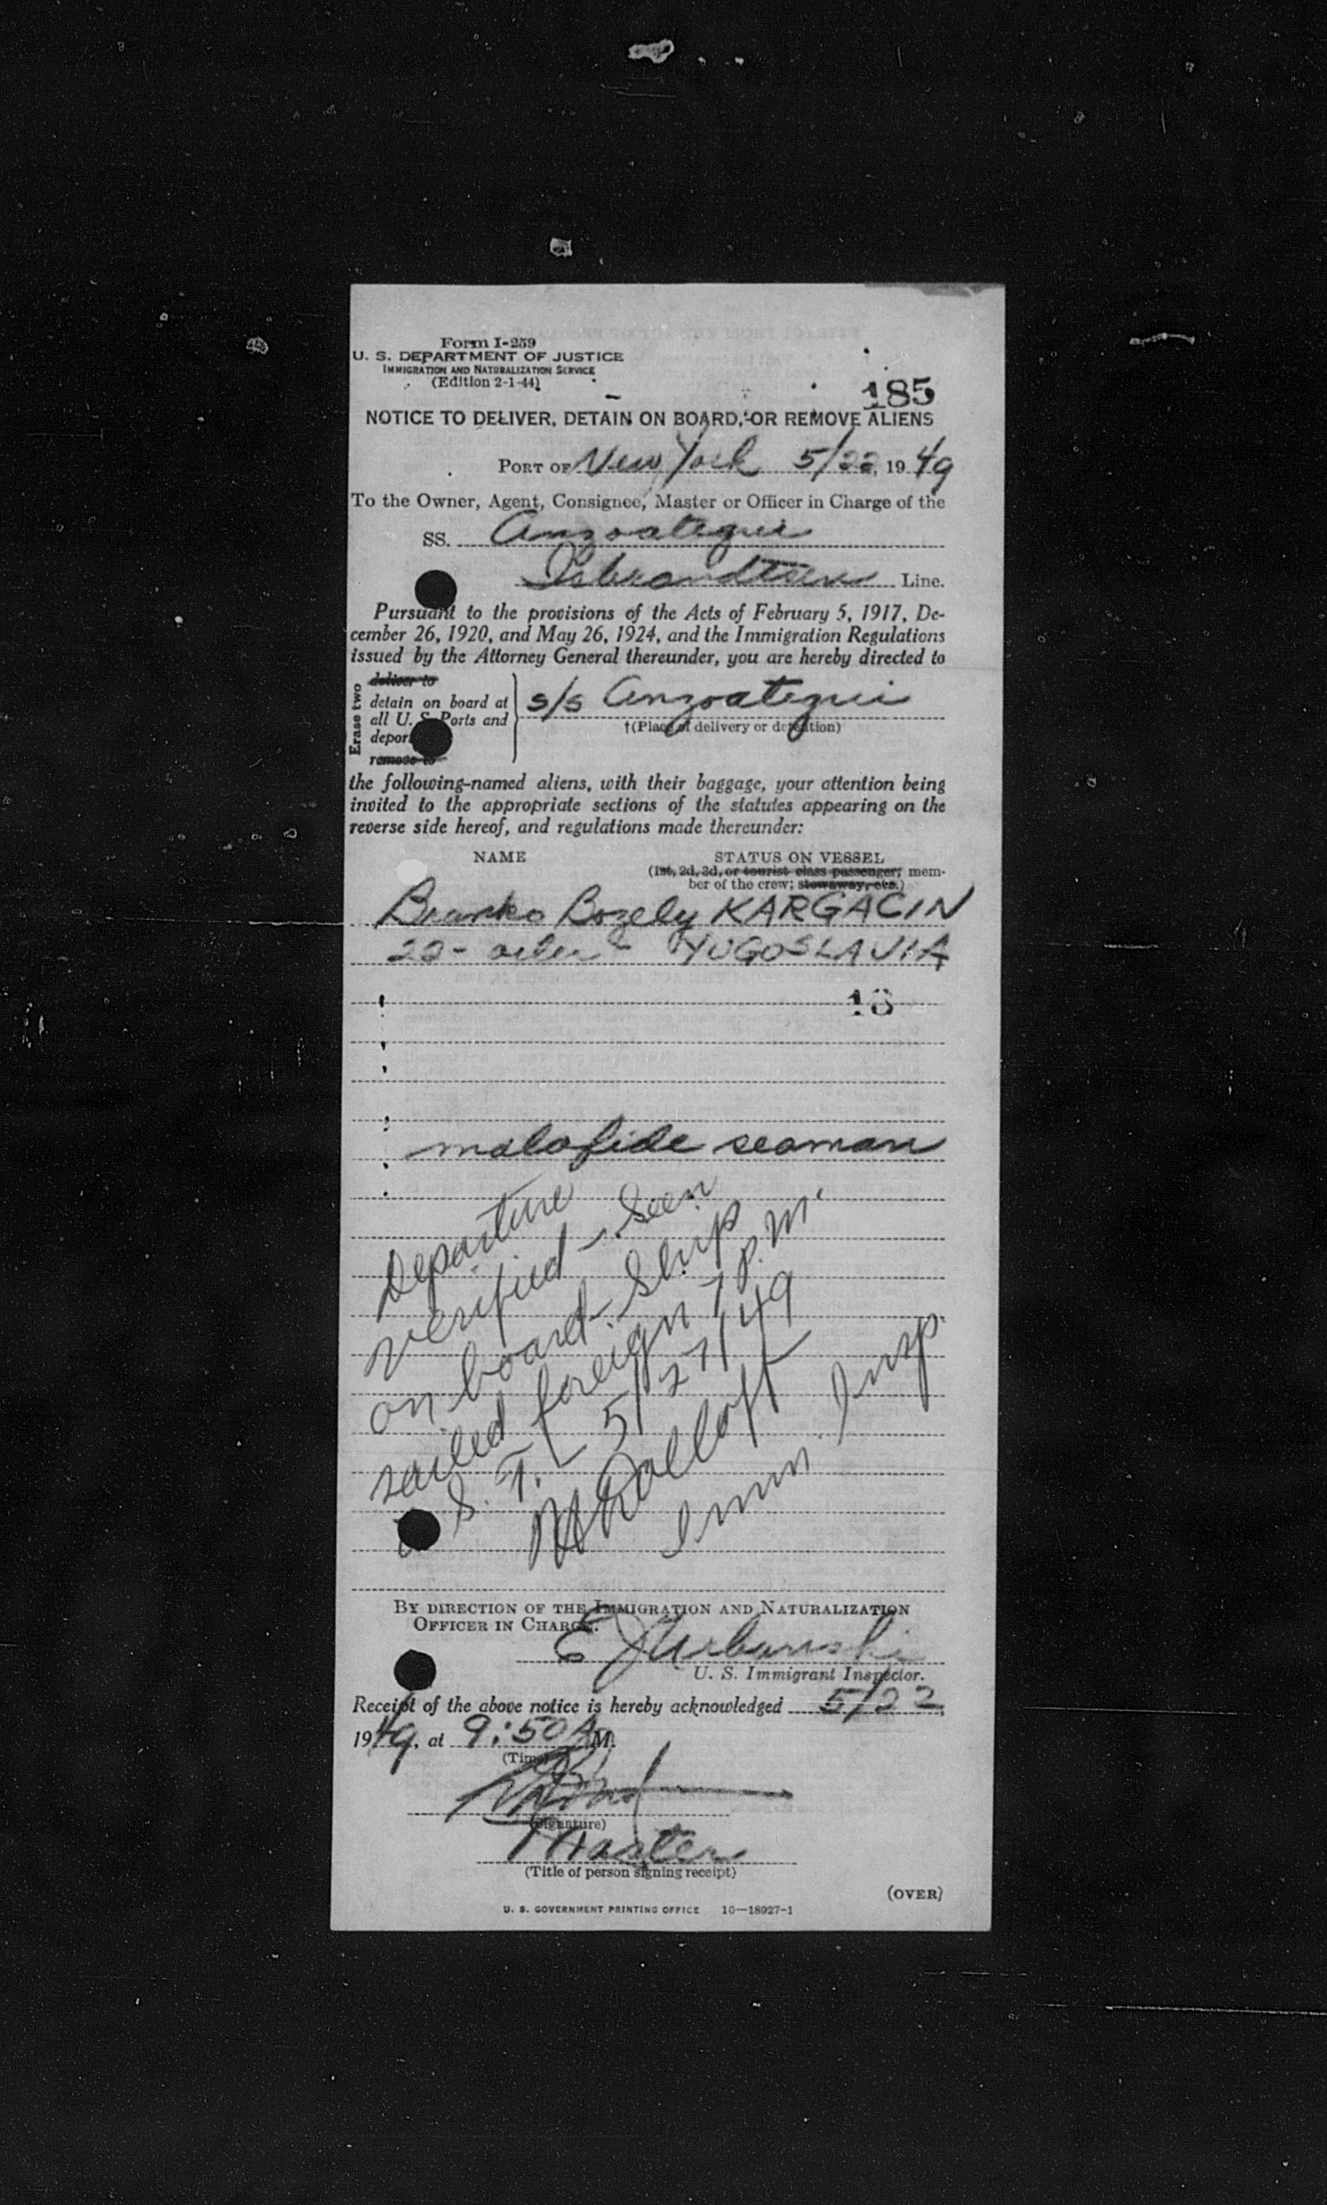 Form I-259
U. S. DEPARTMENT OF JUSTICE
IMMIGRATION AND NATURALIZATION SERVICE
(Edition 2-1-44)
185
NOTICE TO DELIVER, DETAIN ON BOARD, OR REMOVE ALIENS
PORT OF New York 5/22, 1949
To the Owner, Agent, Consignee, Master or Officer in Charge of the
SS. Anzoategui
Isbrandtsen Line.
Pursuant to the provisions of the Acts of February 5, 1917, De-
cember 26, 1920, and May 26, 1924, and the Immigration Regulations
issued by the Attorney General thereunder, you are hereby directed to
Erase two
deliver to
detain on board at
all U. S. Ports and
deport
remove to
s/s Anzoategui
†(Place of delivery or detention)
the following-named aliens, with their baggage, your attention being
invited to the appropriate sections of the statutes appearing on the
reverse side hereof, and regulations made thereunder:
NAME STATUS ON VESSEL
(1st, 2d, 3d, or tourist class passenger; mem-
ber of the crew; stowaway, etc.)
Branko Bozely KARGACIN
22- oiler YUGOSLAVIA
18
malafide seaman
Departure
verified - Seen
on board. Ship
sailed foreign 7 P.M.
S. T. L 5/27/49
Imm. Insp.
BY DIRECTION OF THE IMMIGRATION AND NATURALIZATION
OFFICER IN CHARGE.
E J Urbanski
U. S. Immigrant Inspector.
Receipt of the above notice is hereby acknowledged 5/22,
1949, at 9:50 A M.
(Time)
(Signature)
Master
(Title of person signing receipt)
(OVER)
U. S. GOVERNMENT PRINTING OFFICE 16—18927-1